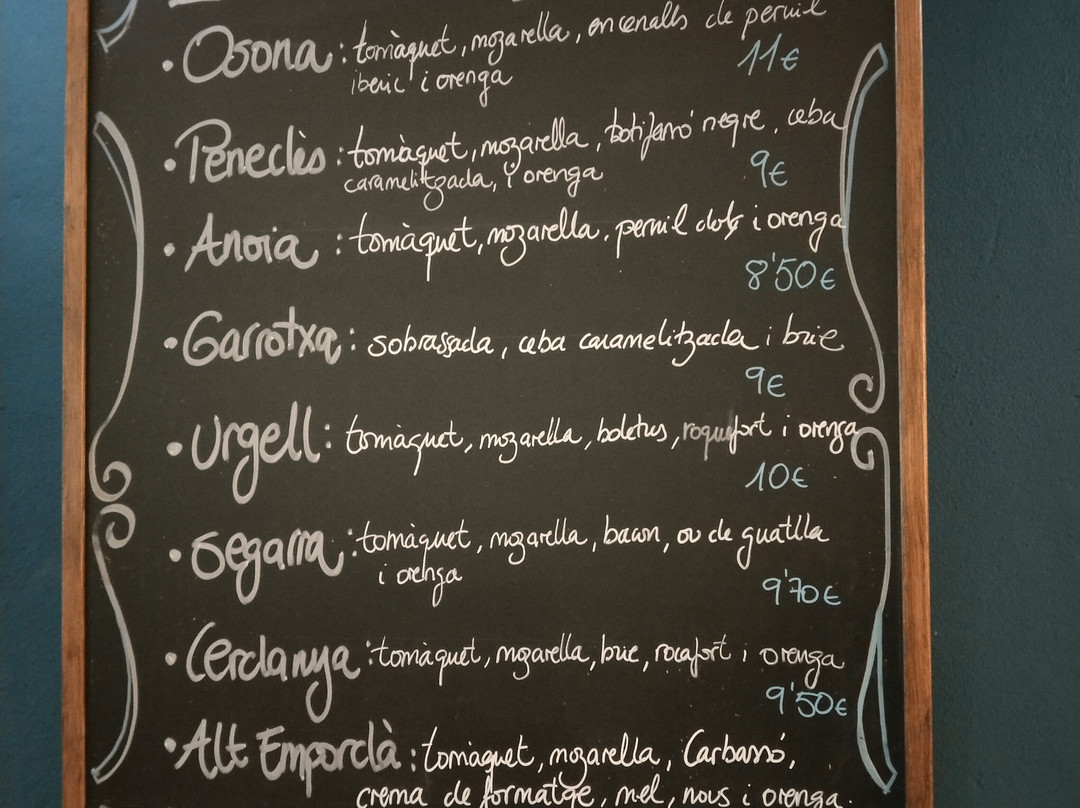 • Osona : tomàquet, mozarella, encenalls de pernil
iberic i orenga
11€
• Penedès : tomàquet, mozarella, botifarró negre, ceba
caramelitzada, i orenga
9€
• Anoia : tomàquet, mozarella, pernil dolç i orenga
8'50€
• Garrotxa : sobrassada, ceba caramelitzada i brie
9€
• Urgell : tomàquet, mozarella, boletus, roquefort i orenga
10€
• Segarra : tomàquet, mozarella, bacon, ou de guatlla
i orenga
9'70€
• Cerdanya : tomàquet, mozarella, brie, rocafort i orenga
9'50€
• Alt Empordà : tomàquet, mozarella, Carbassó,
crema de formatge, mel, nous i orenga.